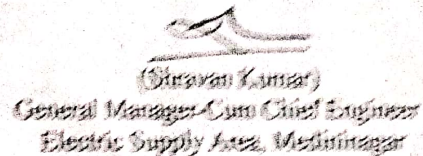 (Shravan Kumar)
General Manager-Cum Chief Engineer
Electric Supply Area, Medininagar